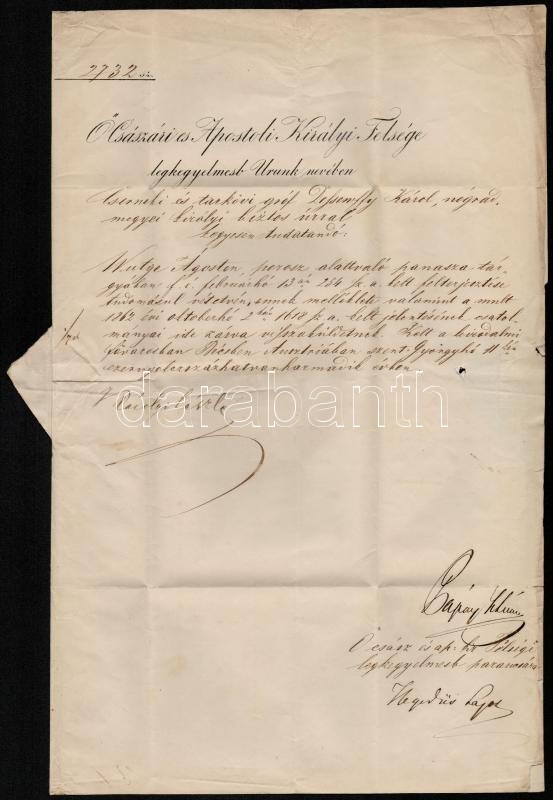 2732 sz.
Ő Császári és Apostoli Királyi Felsége
legkegyelmesb Urunk nevében
Cserneki és tarkövi gróf Dessewffy Károl, nógrád
megyei királyi biztos úrral
tudatandó:
Ágoston, porosz alattvaló panasza tár-
gyában f. é. februárhó 13án 284 sz. a. tett felterjesztése
tudomásul vétetvén, ennek melléklete valamint a mult
1862 évi októberhó 2kán 1618 sz. a. tett jelentésének csatol
mányai ide zárva visszaküldetnek. Költ a birodalmi
fővárosban Bécsben Ausztriában szent-Györgyhó 11kén
ezernyolczszázhatvanharmadik évben
darabanth
Pápay István
Ő csász és ap. kir Felsége
legkegyelmesb parancsára
Hegedüs Lajos